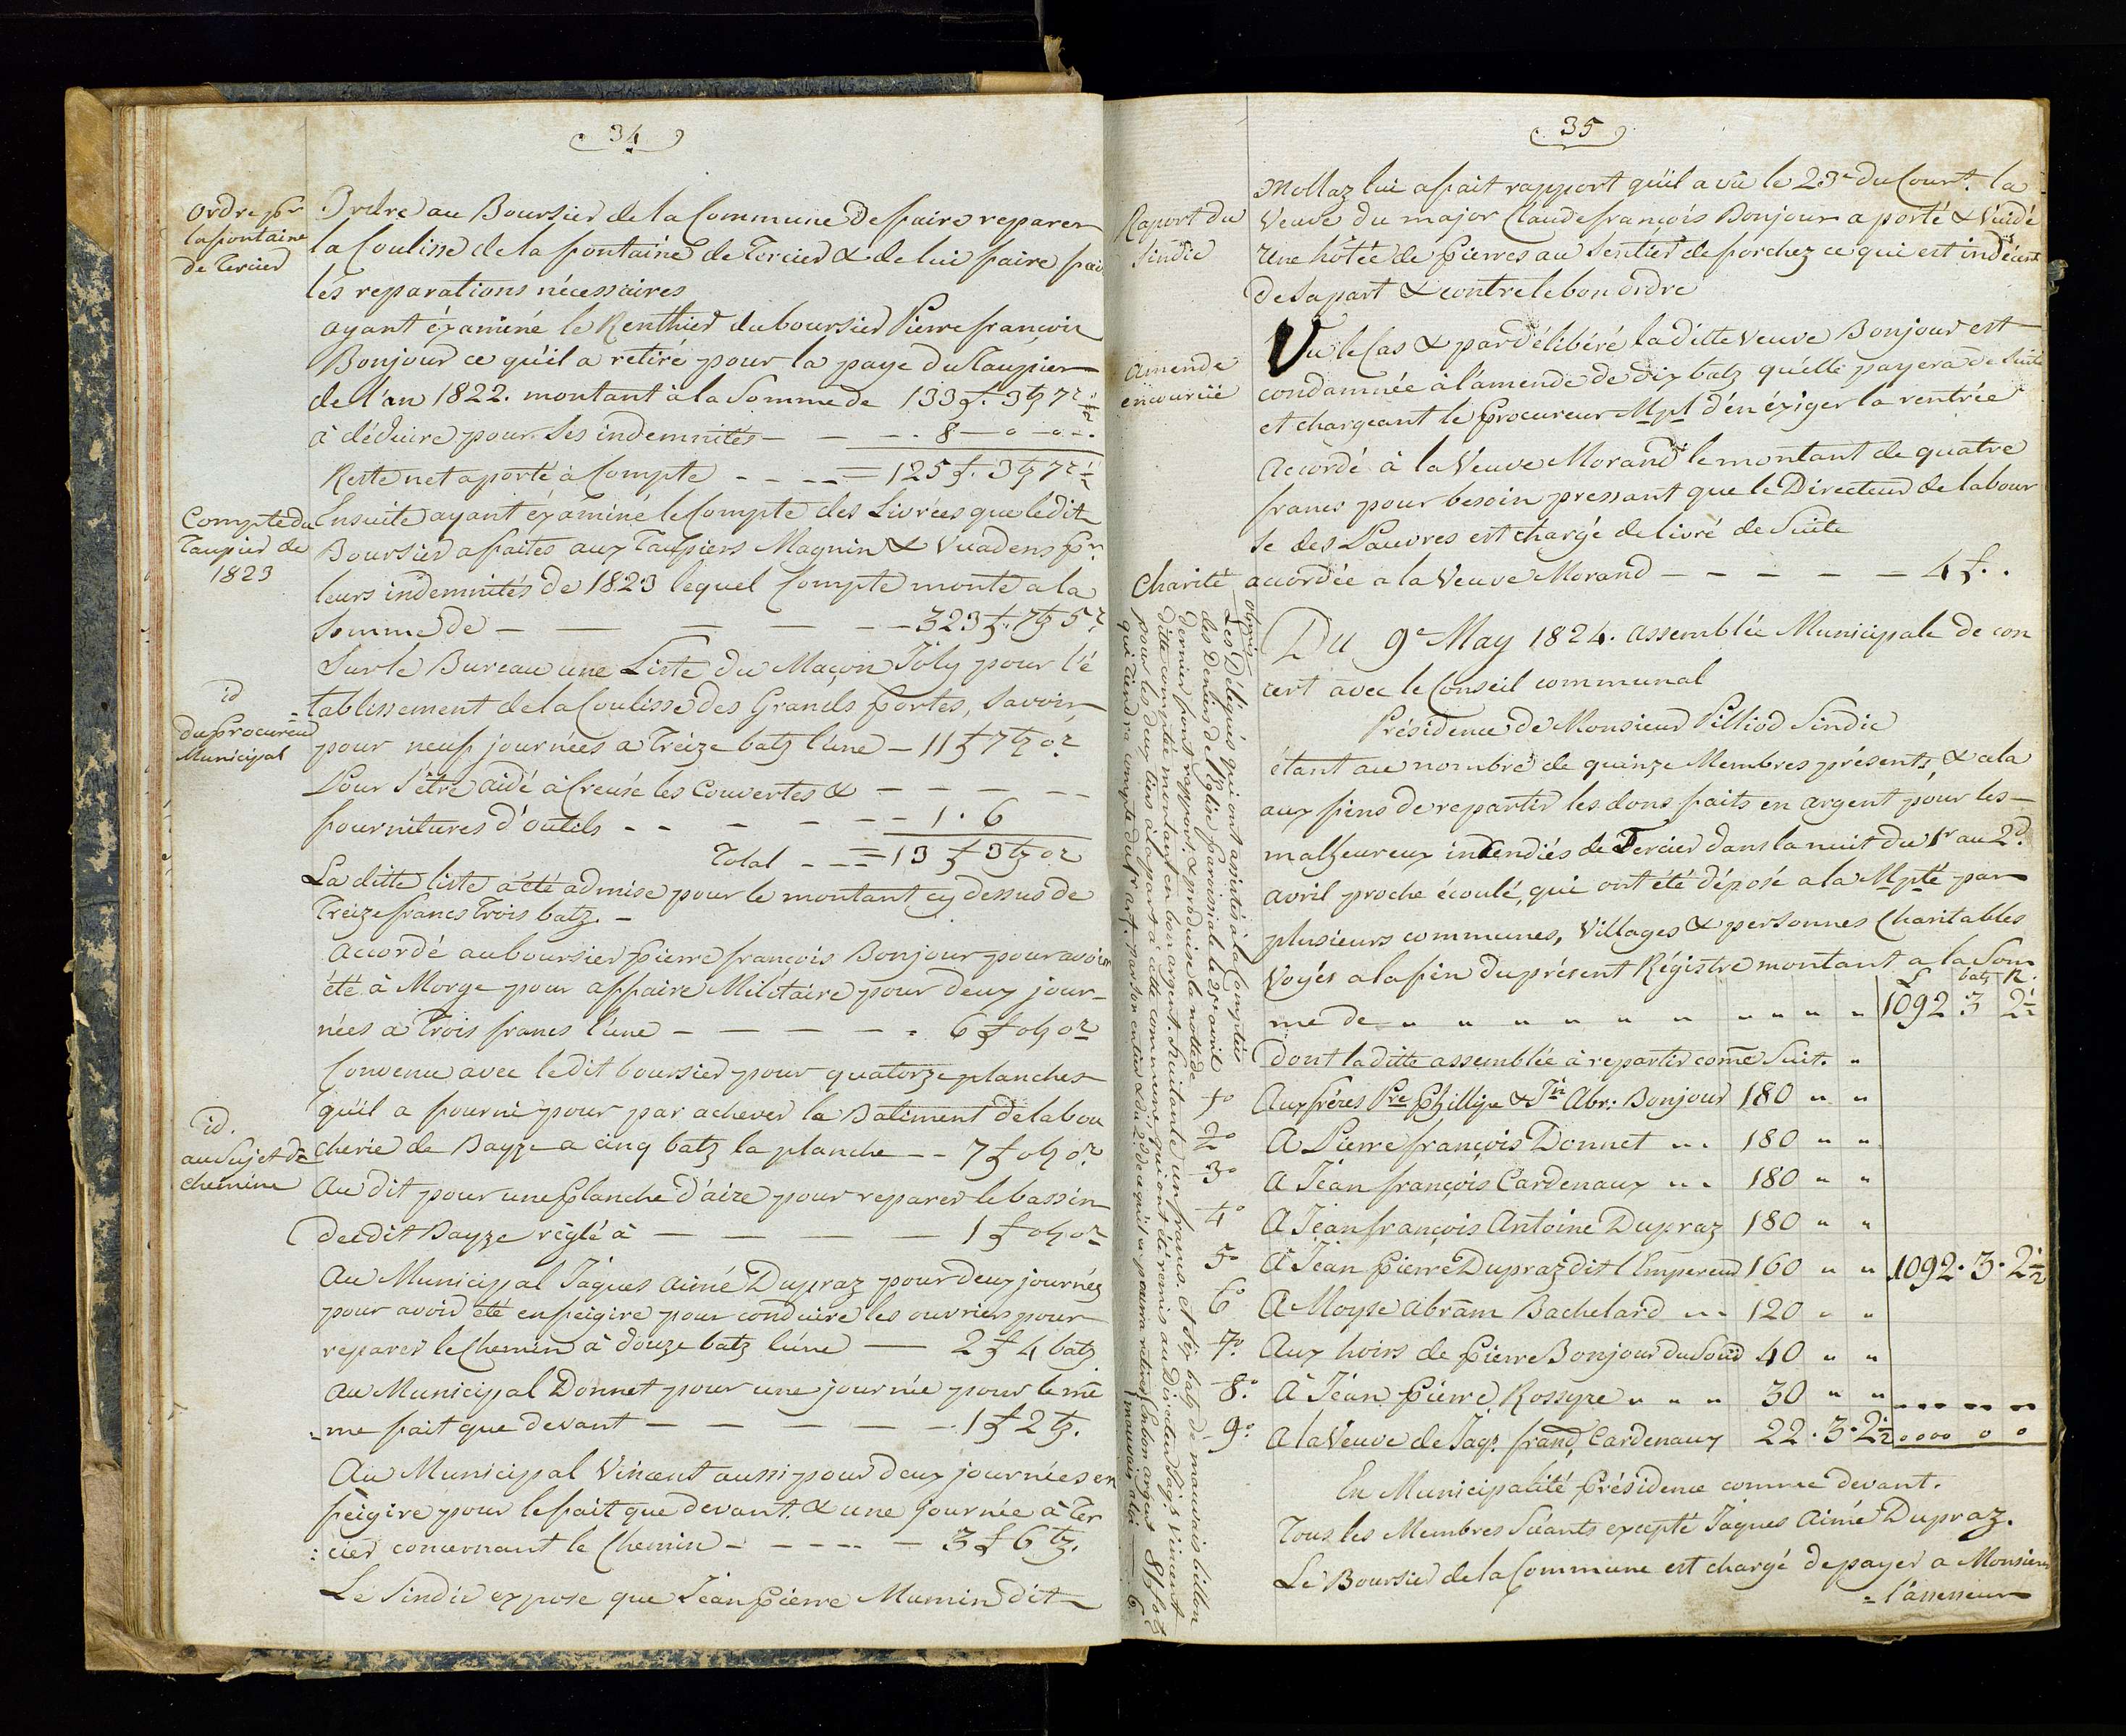 34
Ordre pr
la fontaine
de Tercier
Ordre au Boursier de la Commune de faire reparer
la Coulisse de la fontaine de Tercier & de lui faire
les reparations nécessaires
ayant éxaminé le Renthier du boursier Pierre françois
Bonjour ce qu'il a retiré pour la paye du Taupier
de l'an 1822. montant à la Somme de 133 f. 3 bz 7 r ½
à déduire pour Ses indemnités — — — 8 — o — o —
Reste net aporté à Compte - - - - = 125 f. 3 bz 7 r ½
Compte du
Taupier de
1823
Ensuite ayant éxaminé le Compte des Livrées que le dit
Boursier a faites aux Taupiers Magnin & Vuadens pr.
leurs indemnités de 1823 lequel Compte monte a la
Somme de — — — — — 323 f. 7 bz 5 r
id
du Procureur
Municipal
Sur le Bureau une Liste du Maçon Joly pour l'é
=tablissement de la Coulisse des Grands fortes, Savoir
pour neuf journées a Treize batz l'une — 11 f 7 bz o r
Pour s'être aidé à Creusé les Couvertes & — — — —
fournitures d'outils - - - - - - 1 . 6
Total - - - = 13 f 3 bz o r
La ditte liste a été admise pour le montant cy dessus de
Treize francs Trois batz. -
accordé au boursier pierre françois Bonjour pour avoir
été à Morge pour affaire Militaire pour deux jour-
nées a Trois francs l'une — — — — — 6 f o bz o r
Convenu avec le dit boursier pour quatorze planches
qu'il a fourni pour par achever le Batiment de la bou
cherie de Bayze a cinq batz la planche — — 7 f o bz o r
id.
au Sujet de
chemine
Au dit pour une planche d'aize pour reparer le bassin
dudit Bayze réglé à — — — — 1 f o bz o r
Au Municipal Jaques aimé Dupraz pour deux journées
pour avoir été en feigire pour conduire les ouvriers pour
reparer le Chemin à douze batz l'une — 2 f 4 batz
au Municipal Donnet pour une journée pour le mê
=me fait que devant — — — — — 1 f 2 bz.
Au Municipal Vincent aussi pour deux journées en
feigire pour le fait que devant. & une journée à Ter
:cier concernant le Chemin - - - - - 3 f 6 bz.
Le Sindic expose que Jean Pierre Mamin dit
35
Mollaz lui a fait rapport qu'il a vû le 23e du Court. la
Raport du
Sindic
Veuve du major Claude françois Bonjour a porté & Vuidé
Une hôtée de pierres au Sentier de forchez ce qui est indécent
de Sa part & contre le bon ordre
Amende
encourüe
Vu le Cas & par délibéré la ditte Veuve Bonjour est
condamnée à l'amende de dix batz qu'elle payera de Suite
et chargeant le procureur Mpl d'en éxiger la rentrée
accordé à la Veuve Morand le montant de quatre
francs pour besoin pressant que le Directeur de la bour
se des Pauvres est chargé de livré de Suite
Charité accordée a la Veuve Morand — — — — — 4 f. .
Omis
Les Délégués qui ont assisté à la Comptée
des Deniers de l'Eglise paroissiale le 25e avril
dernier font rapport, & produise la notte de
ditte comptée montant en bon argent. Huitante un francs. et Six batz de mauvais billon
pour les deux tiers à la part à cette commune, qui ont été remis au Directeur Jaqs Vincent
qui Tiendra compte du 1r art. par son entier & du 2d de ce qu'il en pourra retirer { En bon argent 81 f o bz
mauvais aloi — 6
Du 9e May 1824. assemblée Municipale de con
cert avec le Conseil communal
Présidence de Monsieur Pilliod Sindic
étant au nombre de quinze Membres présents, & cela
aux fins de repartir les dons faits en argent pour les
malheureux incendiés de Tercier dans la nuit du 1r au 2d.
avril proche écoulé, qui ont été déposé a la Mpté par
plusieurs communes, Villages & personnes Charitables
Voyés a la fin du présent Régistre montant a la Som
L batz R.
me de " " " " " " " " " " 1092 . 3 2½
dont la ditte assemblée à repartir come Suit. "
1o Aux frères Pre Phillipe & Jn Abr: Bonjour 180 " "
2o A Pierre françois Donnet " " 180 " "
3o A Jéan françois Cardenaux " " 180 " "
4o A Jean françois Antoine Dupraz 180 " "
5o A Jean Pierre Dupraz dit l'Empereur 160 " " 1092 . 3 . 2½
6o A Moyse Abram Bachelard " " 120 " "
7o. Aux hoirs de pierre Bonjour du Soud 40 " "
8o. A Jéan Pierre Rossyre " " " 30 " "
9o. A la Véuve de Jaqs. franç Cardenaux 22 . 3 . 2½ oooo o o
En Municipalité Présidence comme devant.
Tous les Membres Séants excepté Jaques Aimé Dupraz.
Le Boursier de la Commune est chargé de payer a Monsieur
= l'assesseur